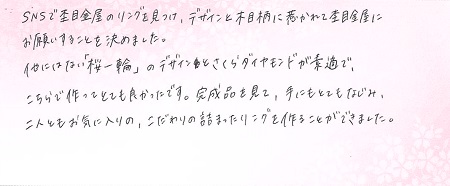 SNSで杢目金屋のリングを見つけ、デザインと木目柄に惹かれて杢目金屋に
お願いすることを決めました。
他にはない「桜一輪」のデザインとさくらダイヤモンドが素適で、
こちらで作ってとても良かったです。完成品を見て、手にもとてもなじみ、
二人ともお気に入りの、こだわりの詰まったリングを作ることができました。